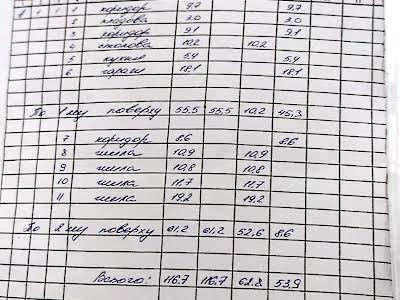 1 коридор 9.7 9.7
2 кладова 3.0 3.0
3 коридор 9.1 9.1
4 столова 10,2 10,2
5 кухня 5,4 5,4
6 гараж 18,1 18,1
По 1 му поверху 55,5 55,5 10,2 45,3
7 коридор 8.6 8.6
8 жила 10,9 10,9
9 жила 10,8 10,8
10 жила 11,7 11,7
11 жила 19,2 19,2
По 2 му поверху 61,2 61,2 52,6 8,6
Всього: 116,7 116,7 62,8 53,9